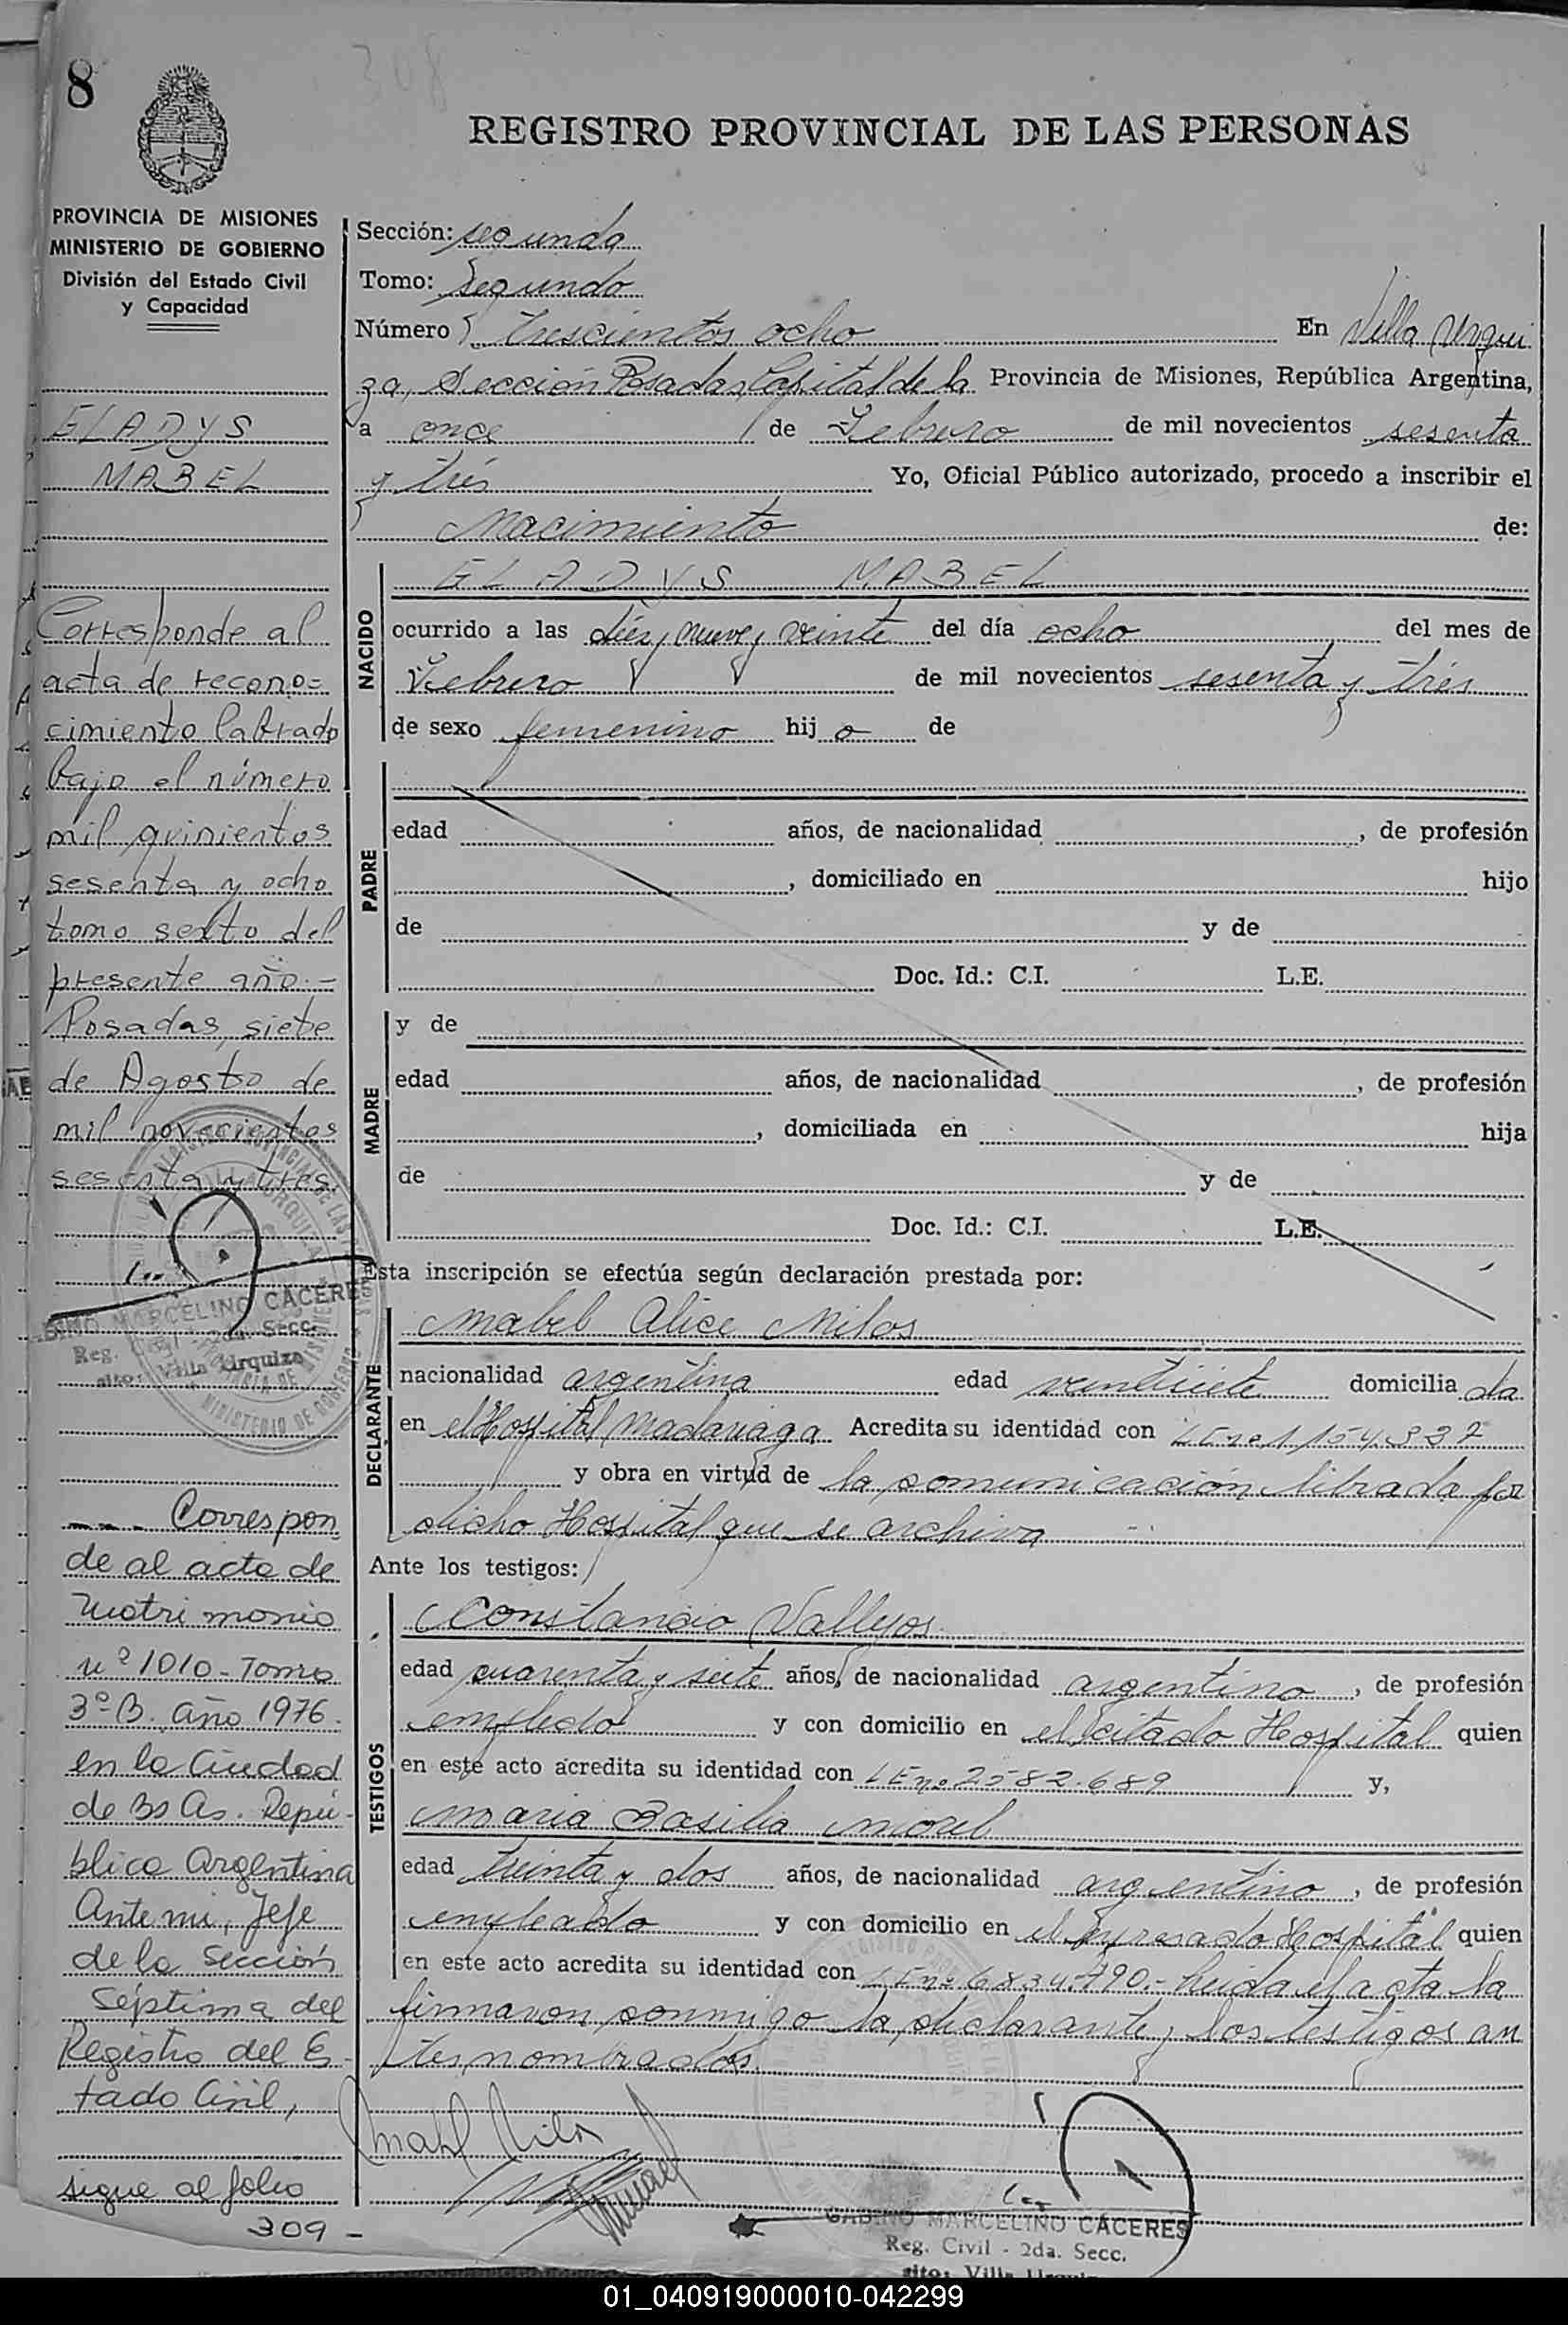 8
308
REGISTRO PROVINCIAL DE LAS PERSONAS
PROVINCIA DE MISIONES
MINISTERIO DE GOBIERNO
División del Estado Civil
y Capacidad
GLADYS
MABEL
Corresponde al
acta de recono=
cimiento labrado
bajo el número
mil quinientos
sesenta y ocho
tomo sexto del
presente año.-
Posadas, siete
de Agosto de
mil novecientos
sesenta y tres
MARCELINO CACERE
Reg. Civil Secc.
Villa Urquiza
Correspon
de al acta de
Matrimonio
nº 1010 - Tomo
3º B. año 1976.
en la Ciudad
de Bs As. Repú-
blica Argentina
Ante mi, Jefe
de la Sección
Séptima del
Registro del Es-
tado Civil,
sigue al folio
309 -
Sección: segunda
Tomo: Segundo
Número trescientos ocho En Villa Urqui
za, Sección Posadas, Capital de la Provincia de Misiones, República Argentina,
a once de Febrero de mil novecientos sesenta
y trés Yo, Oficial Público autorizado, procedo a inscribir el
Nacimiento de:
NACIDO
GLADYS MABEL
ocurrido a las diez y nueve y veinte del día ocho del mes de
Febrero de mil novecientos sesenta y trés
de sexo femenino hij a de
PADRE
edad años, de nacionalidad , de profesión
, domiciliado en hijo
de y de
Doc. Id.: C.I. L.E.
MADRE
y de
edad años, de nacionalidad , de profesión
, domiciliada en hija
de y de
Doc. Id.: C.I. L.E.
Esta inscripción se efectúa según declaración prestada por:
DECLARANTE
Mabel Alice Milos
nacionalidad argentina edad veintisiete domicilia da
en el Hospital Madariaga Acredita su identidad con LE nº 1.154.337
y obra en virtud de la comunicación librada por
dicho Hospital que se archiva
Ante los testigos:
TESTIGOS
Constancio Vallejos
edad cuarenta y siete años, de nacionalidad argentino, de profesión
empledo y con domicilio en el citado Hospital quien
en este acto acredita su identidad con LE nº 2582.689 y,
Maria Basilia Morel
edad treinta y dos años, de nacionalidad argentino, de profesión
empleado y con domicilio en el expresado Hospital quien
en este acto acredita su identidad con LE nº 6834.790.- Leida el acta la
firmaron conmigo la declarante y los testigos an
tes nombrados.
GABINO MARCELINO CÁCERES
Reg. Civil - 2da. Secc.
01_040919000010-042299